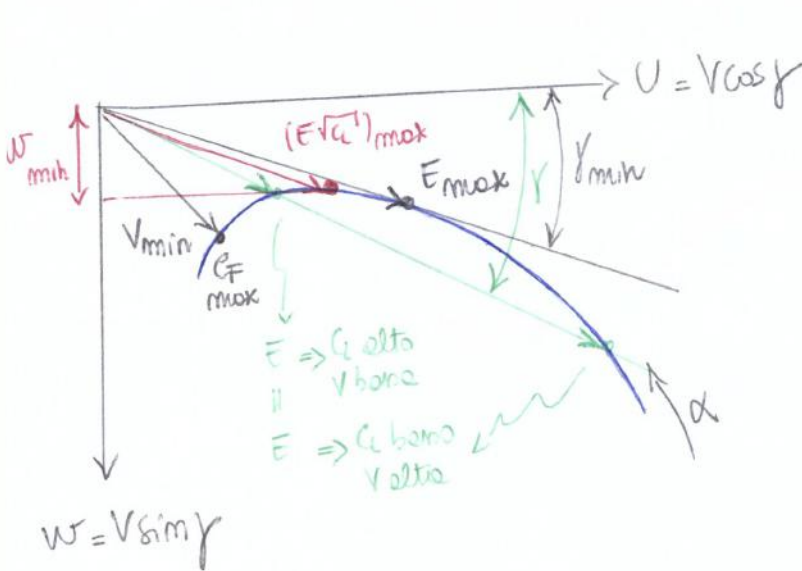 U = V cos γ
(E√CL)max
w min
Emax
γ
γmin
Vmin
CF max
E ⇒ CL alto
V basso
=
E ⇒ CL basso
V alta
α
w = V sin γ